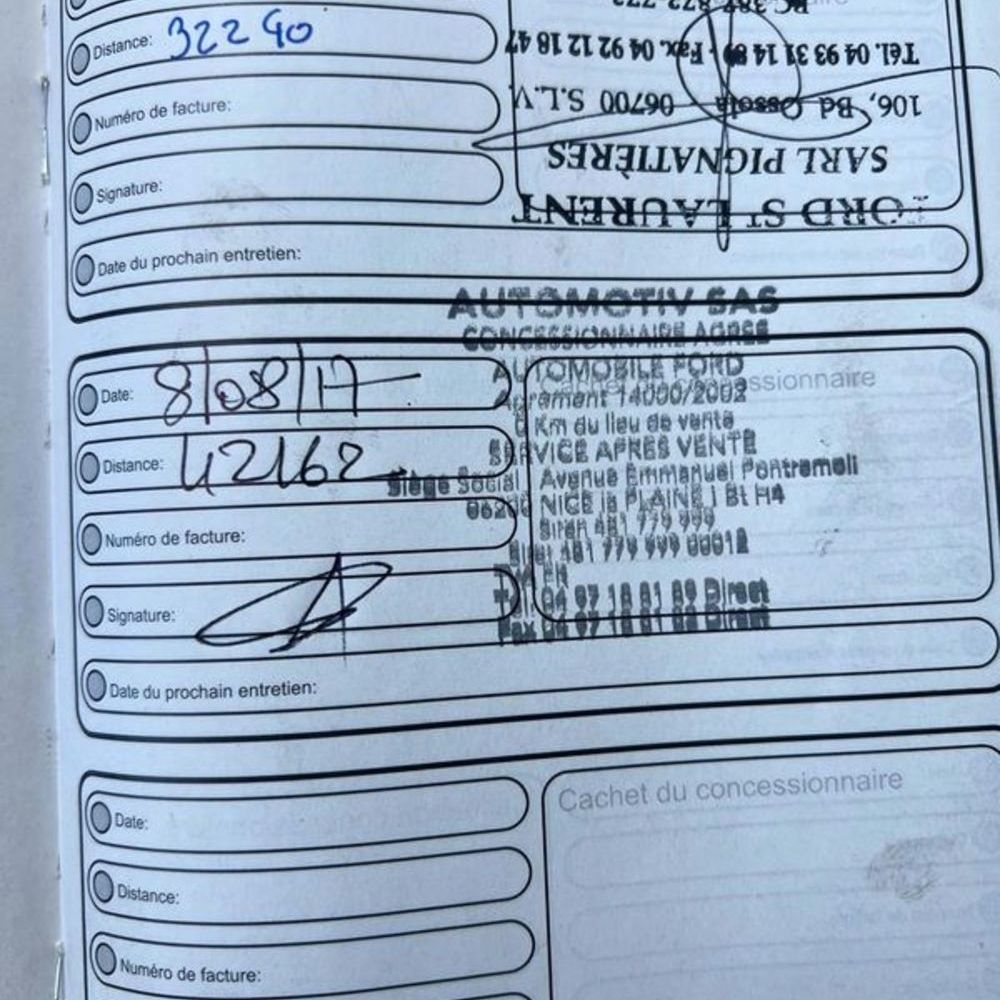 Distance: 32240
Numéro de facture:
Signature:
Date du prochain entretien:
FORD ST LAURENT
SARL PIGNATIÈRES
106, Bd Ossola 06700 S.L.V.
Tél. 04 93 31 14 - Fax. 04 92 12 18 47
Date: 8/08/17
Distance: 42162
Numéro de facture:
Signature:
Date du prochain entretien:
Cachet du concessionnaire
AUTOMOTIV SAS
CONCESSIONNAIRE AGREE
AUTOMOBILE FORD
Agrement 14000/2002
0 Km du lieu de vente
SERVICE APRES VENTE
Siège Social Avenue Emmanuel Pontremoli
06200 NICE la PLAINE 1 Bt H4
Siren 481 779 999
Siret 481 779 999 00012
Tel: 04 97 18 81 89 Direct
Fax 04 97 18 81 88 Direct
Date:
Distance:
Numéro de facture:
Cachet du concessionnaire